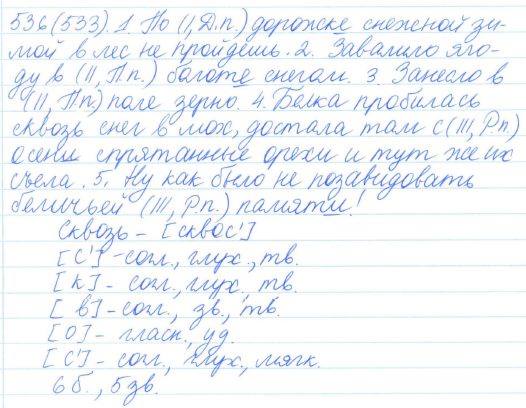 536(533). 1. По (I, Д.п.) дорожке снежной зи-
мой в лес не пройдёшь. 2. Завалило яго-
ду в (II, П.п.) болоте снегом. 3. Занесло в
(II, Пп.) поле зерно. 4. Белка пробилась
сквозь снег в мох, достала там с (III, Р.п.)
осени спрятанные орехи и тут же их
съела. 5. Ну как было не позавидовать
беличьей (III, Р.п.) памяти!
Сквозь – [сквос']
[С'] – согл., глух., тв.
[к] – согл., глух., тв.
[в] – согл., зв., тв.
[о] – гласн., уд.
[с'] – согл., глух., мягк.
6 б., 5 зв.